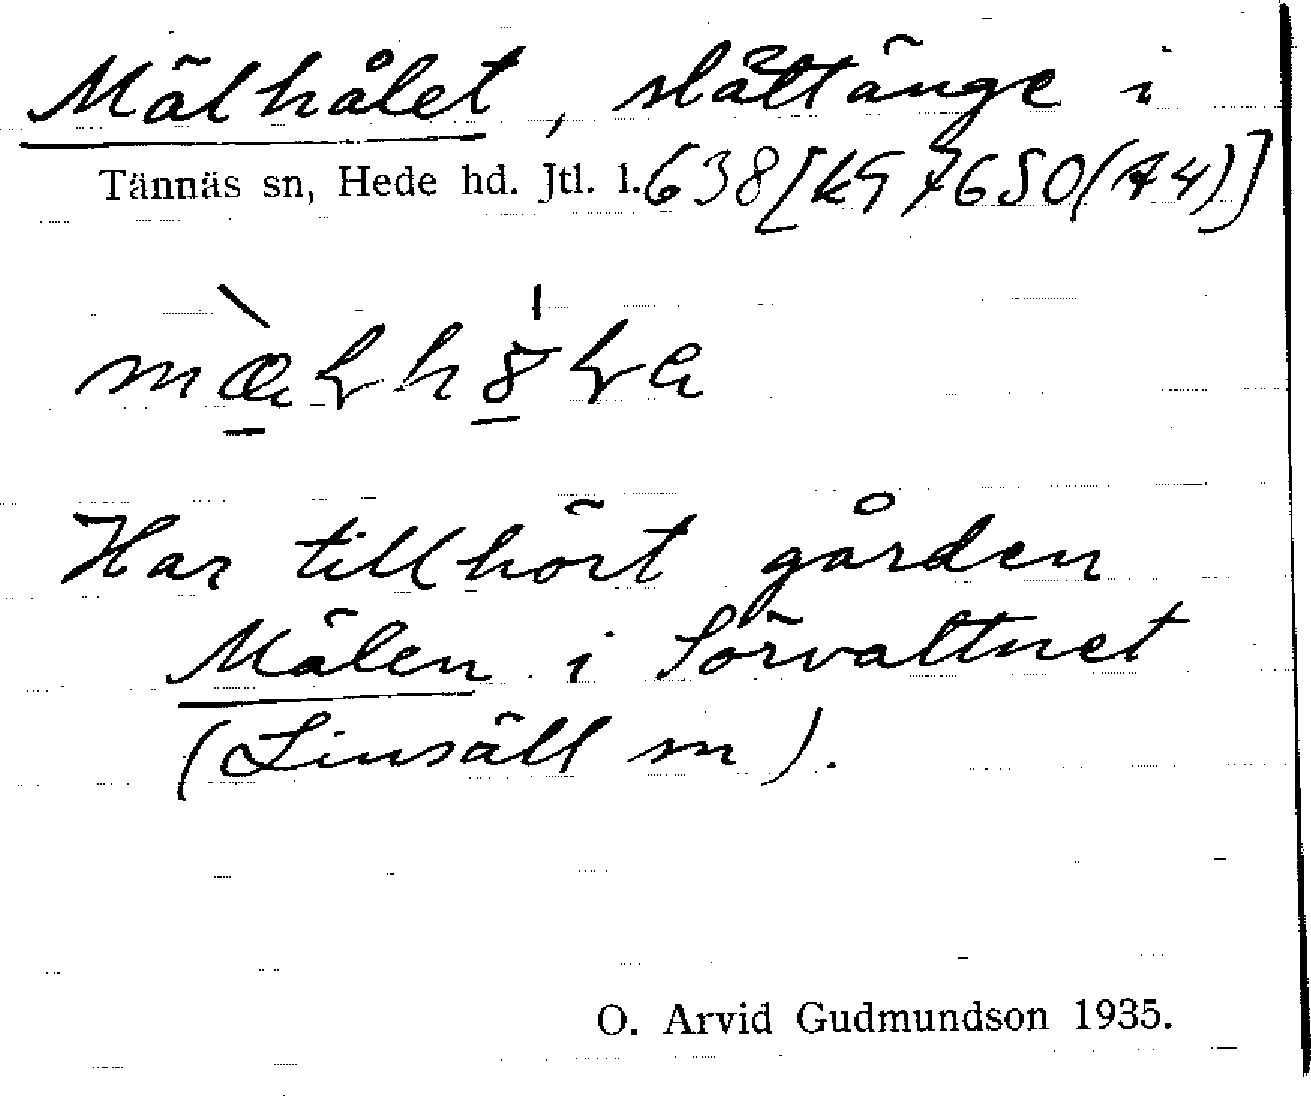 Mälhålet, slåttänge i
Tännäs sn, Hede hd. Jtl. l. 638 [kg 7650 (A4)]
Har tillhört gården
Mälen i Sörvattnet
(Linsäll sn).
O. Arvid Gudmundson 1935.